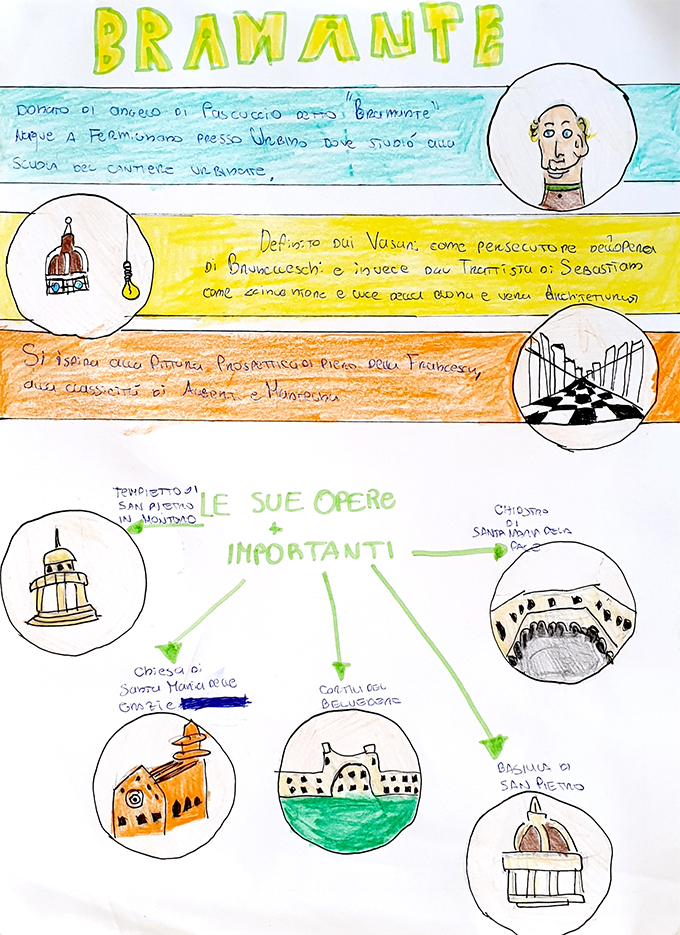 BRAMANTE
DONATO DI ANGELO DI PASCUCCIO DETTO "BRAMANTE"
NACQUE A FERMIGNANO PRESSO URBINO DOVE STUDIÓ ALLA
SCUOLA DEL CANTIERE URBINATE,
Definito DAI VASARI COME PERSECUTORE DELL'OPERA
DI BRUNELLESCHI E INVECE DAL TRATTISTA DI SEBASTIANO
COME E LUCE DELLA BUONA E VERA ARCHITETTURA
Si ISPIRA ALLA PITTURA PROSPETTICA DI PIERO DELLA FRANCESCA,
ALLA CLASSICITÁ DI ALBERTI E MANTEGNA
LE SUE OPERE
+
IMPORTANTI
TEMPIETTO DI
SAN PIETRO
IN MONTORIO
CHIOSTRO
DI
SANTA MARIA DELA
PACE
Chiesa di
Santa Maria delle
GRAZIE
CORTILE DEL
BELVEDERE
BASILICA DI
SAN PIETRO